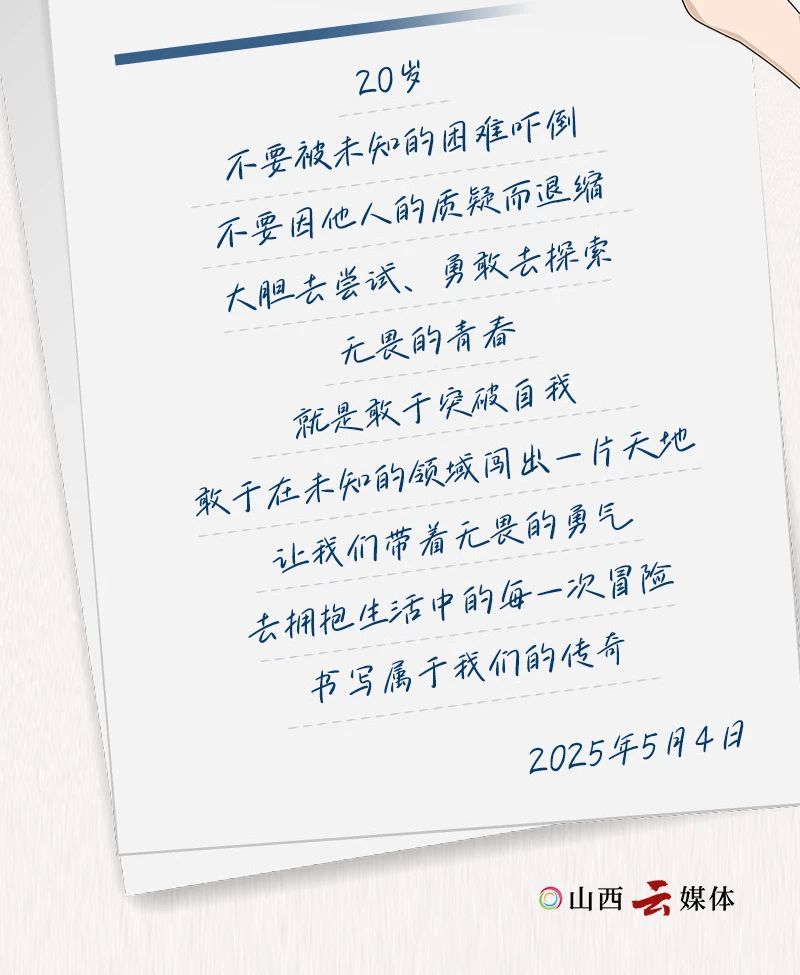 20岁
不要被未知的困难吓倒
不要因他人的质疑而退缩
大胆去尝试、勇敢去探索
无畏的青春
就是敢于突破自我
敢于在未知的领域闯出一片天地
让我们带着无畏的勇气
去拥抱生活中的每一次冒险
书写属于我们的传奇
2025年5月4日
山西云媒体